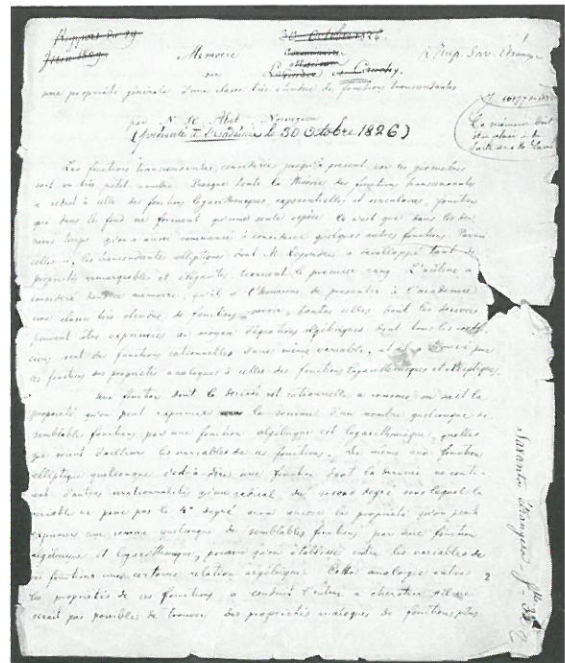 Rapport du 29
Juin 1829
30 Octobre 1826.
Commissaires
Mémoire
Messieurs
sur
Legendre et Cauchy.
une propriété générale d'une classe très étendue de fonctions transcendantes
par N. H. Abel, Norvégien
(présenté à l'académie le 30 Octobre 1826)
Ce mémoire doit
être
Les fonctions transcendantes considérées jusqu'à présent par les géomètres
sont en très petit nombre. Presque toute la théorie des fonctions transcendantes
se réduit à celle des fonctions logarithmiques, exponentielles et circulaires, fonctions
qui dans le fond ne forment qu'une seule espèce. Ce n'est que dans les der-
niers temps qu'on a aussi commencé à considérer quelques autres fonctions. Parmi
celles-ci, les transcendantes elliptiques dont M. Legendre a développé tant de
propriétés remarquables et élégantes tiennent le premier rang. L'auteur a
considéré dans ce mémoire, qu'il a l'honneur de présenter à l'académie
une classe très étendue de fonctions, savoir: toutes celles dont les dérivées
peuvent être exprimées au moyen d'équations algébriques dont tous les coeffi-
ciens sont des fonctions rationnelles d'une même variable, et il a trouvé pour
ces fonctions des propriétés analogues à celles des fonctions logarithmiques et elliptiques.
Une fonction dont la dérivée est rationnelle a comme on sait la
propriété qu'on peut exprimer la somme d'un nombre quelconque de
semblables fonctions par une fonction algébrique et logarithmique, quelles
que soient d'ailleurs les variables de ces fonctions. De même une fonction
elliptique quelconque c'est-à-dire une fonction dont la dérivée ne conti-
ent d'autres irrationnalités qu'un radical du second degré sous lequel la
variable ne passe pas le 4e degré aura encore la propriété qu'on peut
exprimer une somme quelconque de semblables fonctions par une fonction
algébrique et logarithmique, pourvu qu'on établisse entre les variables de
ces fonctions une certaine relation algébrique. Cette analogie entre
les propriétés de ces fonctions a conduit l'auteur à chercher s'il ne
serait pas possible de trouver des propriétés analogues de fonctions plus
Savants Étrangers